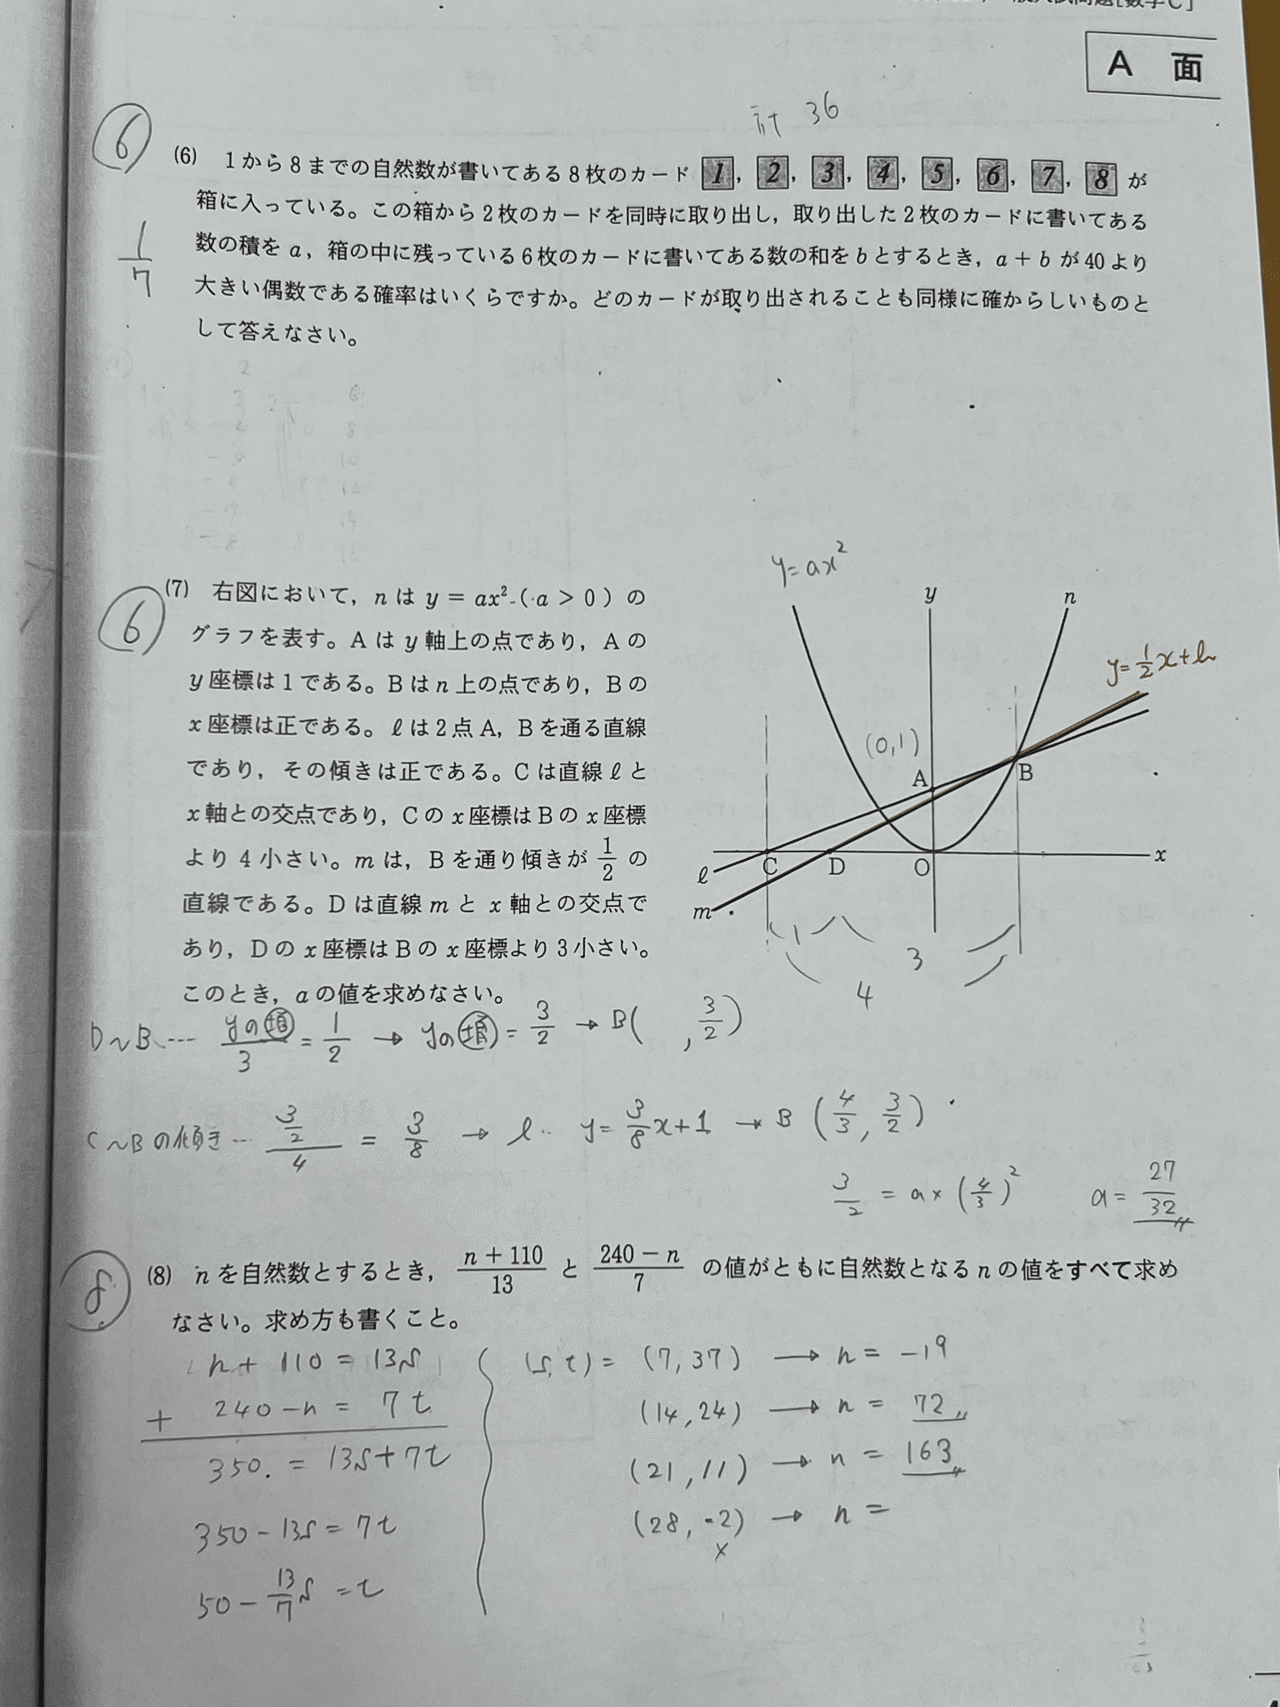 A 面
計 36
⑥
(6) 1から8までの自然数が書いてある8枚のカード 1, 2, 3, 4, 5, 6, 7, 8 が
箱に入っている。この箱から2枚のカードを同時に取り出し,取り出した2枚のカードに書いてある
数の積をa,箱の中に残っている6枚のカードに書いてある数の和をbとするとき,a+bが40より
大きい偶数である確率はいくらですか。どのカードが取り出されることも同様に確からしいものと
して答えなさい。
1/7
⑥
(7) 右図において,nは y = ax² (a > 0) の
グラフを表す。Aはy軸上の点であり,Aの
y座標は1である。Bはn上の点であり,Bの
x座標は正である。ℓは2点A,Bを通る直線
であり,その傾きは正である。Cは直線ℓと
x軸との交点であり,Cのx座標はBのx座標
より4小さい。mは,Bを通り傾きが1/2の
直線である。Dは直線mとx軸との交点で
あり,Dのx座標はBのx座標より3小さい。
このとき,aの値を求めなさい。
y=ax²
y
n
y=1/2x+b
(0,1)
A
B
x
ℓ
C
D
O
m
1
3
4
D~B… yの増/3 = 1/2 → yの増 = 3/2 → B( , 3/2)
C~Bの傾き… 3/2/4 = 3/8 → ℓ… y=3/8x+1 → B (4/3, 3/2)
3/2 = a×(4/3)² a= 27/32
⑧
(8) nを自然数とするとき, n+110/13 と 240-n/7 の値がともに自然数となるnの値をすべて求め
なさい。求め方も書くこと。
n+110=13s
+ 240-n=7t
350.=13s+7t
350-13s=7t
50-13/7s=t
(s,t)= (7,37) → n=-19
(14,24) → n= 72
(21,11) → n= 163
(28,-2) → n=
×